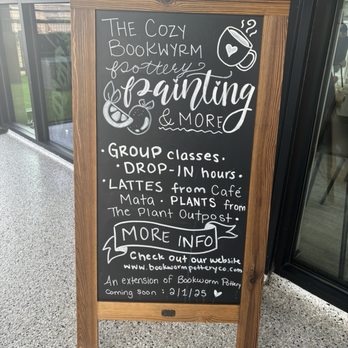 THE COZY
BOOKWYRM
pottery
painting
& MORE
· GROUP classes ·
· DROP-IN hours ·
· LATTES from Café
Mata · PLANTS from
The Plant Outpost ·
MORE INFO
Check out our website
www.bookwormpotteryco.com
An extension of Bookworm Pottery
Coming soon : 2/1/25 ♥